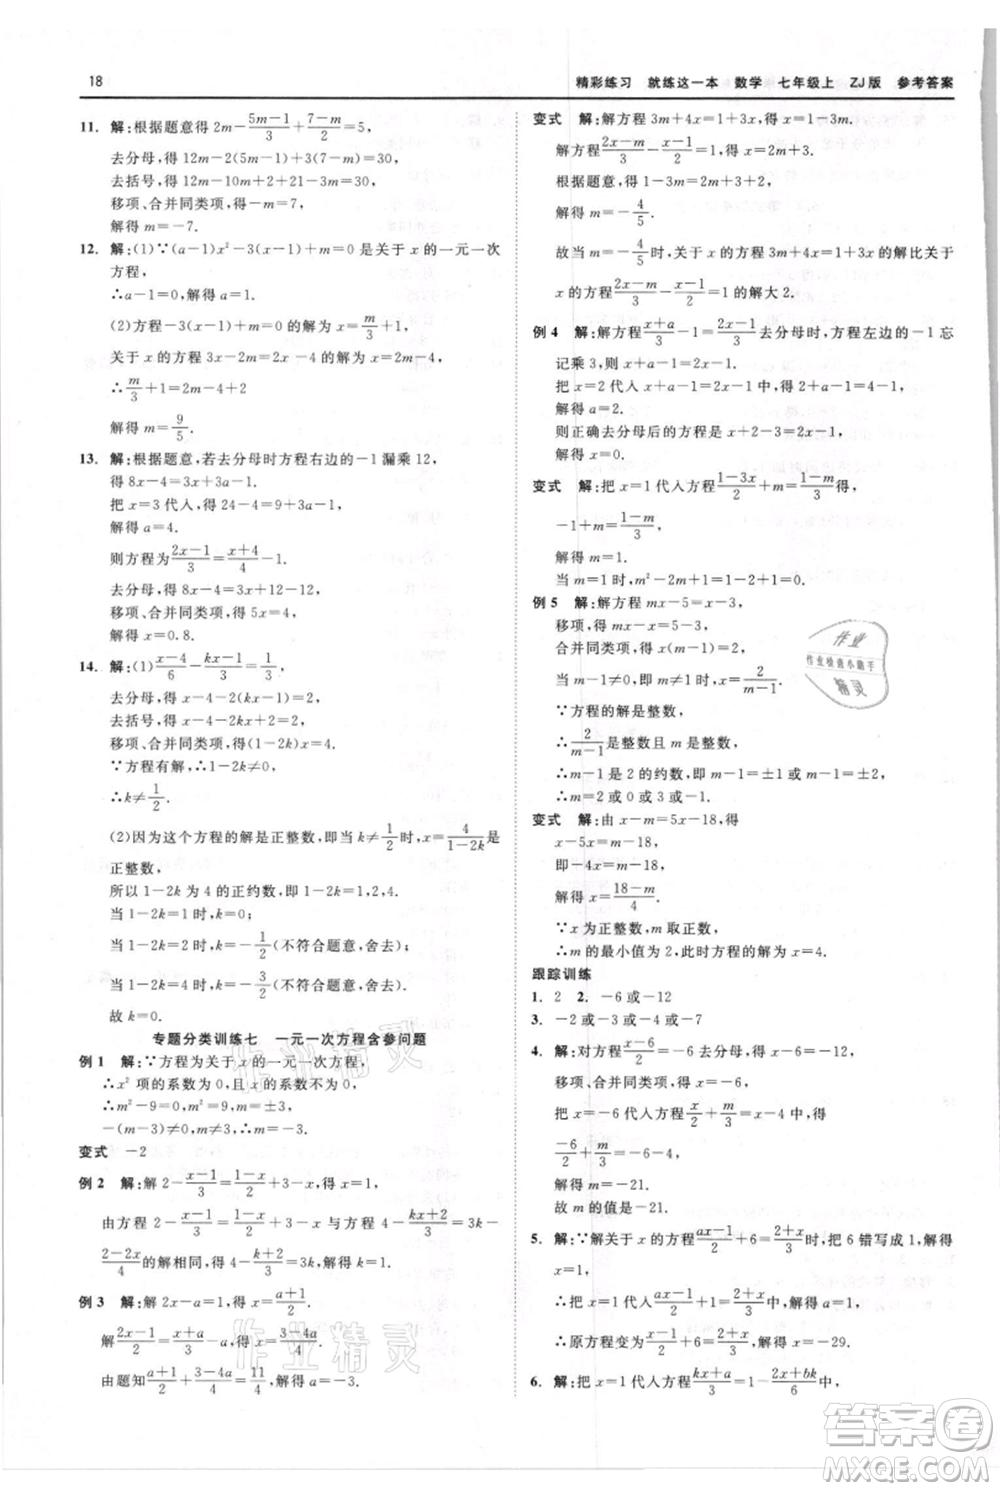 18
精彩练习 就练这一本 数学 七年级上 ZJ版 参考答案
11. 解:根据题意得 2m-(5m-1)/3+(7-m)/2=5,
去分母,得 12m-2(5m-1)+3(7-m)=30,
去括号,得 12m-10m+2+21-3m=30,
移项、合并同类项,得-m=7,
解得 m=-7.
12. 解:(1)∵(a-1)x²-3(x-1)+m=0 是关于 x 的一元一次
方程,
∴a-1=0,解得 a=1.
(2)方程-3(x-1)+m=0 的解为 x=m/3+1,
关于 x 的方程 2x-m=2x-4 的解为 x=2m-4,
∴m/3+1=2m-4+2
解得 m=9/5.
13. 解:根据题意,若去分母时方程右边的-1漏乘12,
得 8x-4=3x+3a-1.
把 x=3 代入,得 24-4=9+3a-1,
解得 a=4.
则方程为(2x-1)/3=(x+4)/4-1.
去分母,得 8x-4=3x+12-12,
移项、合并同类项,得 5x=4,
解得 x=0.8.
14. 解:(1)(x-4)/6-(kx-1)/3=1/3,
去分母,得 x-4-2(kx-1)=2,
去括号,得 x-4-2kx+2=2,
移项、合并同类项,得(1-2k)x=4.
∵方程有解,∴1-2k≠0,
∴k≠1/2.
(2)因为这个方程的解是正整数,即当 k≠1/2时,x=4/(1-2k)是
正整数,
所以 1-2k 为 4 的正约数,即 1-2k=1,2,4.
当 1-2k=1 时,k=0;
当 1-2k=2 时,k=-1/2(不符合题意,舍去);
当 1-2k=4 时,k=-3/2(不符合题意,舍去).
故 k=0.
专题分类训练七 一元一次方程含参问题
例 1 解:∵方程为关于 x 的一元一次方程,
∴x² 项的系数为 0,且 x 项的系数不为 0,
∴m²-9=0,解得 m=±3,
-(m-3)≠0,m≠3,∴m=-3.
变式 -2
例 2 解:解 2-(x-1)/3=(1-x)/2+3-x,得 x=1,
由方程 2-(x-1)/3=(1-x)/2+3-x 与方程 4-(kx+2)/3=3k-
(2-2x)/4的解相同,得 4-(k+2)/3=3k,解得 k=1.
例 3 解:解 2x-a=1,得 x=(a+1)/2.
解(x-1)/2=(x+a)/3,得 x-a=(3-4a)/3.
由题知(a+1)/2=(3-4a)/3+9/2,解得 a=3.
变式 解:解方程 3m+4x=1+3x,得 x=1-3m.
解方程(2x-m)/3-(x-1)/2=1,得 x=2m+3.
根据题意,得 1-3m=2m+3+2,
解得 m=-4/5.
故当 m=-4/5时,关于 x 的方程 3m+4x=1+3x 的解比关于
x 的方程(2x-m)/3-(x-1)/2=1 的解大 2.
例 4 解:解方程(x+a)/3-1=(2x-1)/3去分母时,方程左边的-1忘
记乘 3,则 x+a-1=2x-1.
把 x=2 代入 x+a-1=2x-1 中,得 2+a-1=4-1,
解得 a=2.
则正确去分母后的方程是 x+2-3=2x-1,
解得 x=0.
变式 解:把 x=1 代入方程(1-3x)/2+m=(x-m)/2得,
-1+m=(1-m)/2.
解得 m=1.
当 m=1 时,m²-2m+1=1-2+1=0.
例 5 解:解方程 mx-5=x-3,
移项,得 mx-x=-3+5,
合并同类项,得(m-1)x=2.
若方程有解,则 m-1≠0,x=2/(m-1).
∵方程的解是整数,
∴2/(m-1)是整数且 m 是整数,
∴m-1 是 2 的约数,即 m-1=±1 或±2,
∴m=2 或 0 或 3 或-1.
变式 解:由 x-m=5x-18,得
x-5x=m-18,
即-4x=m-18,
解得 x=(18-m)/4.
∵x 取正整数,m 取正数,
∴m 的最小值为 2,此时方程的解为 x=4.
跟踪训练
1. 2 2. -6 或-12
3. -2 或-3 或-4
4. 解:对方程(x-6)/2=x去分母,得 x-6=2x,
移项、合并同类项,得 x=-6,
把 x=-6 代入方程x/2+m/3=x-4,得
-6/2+m/3=-6-4,
解得 m=-21.
故 m 的值是-21.
5. 解:∵解关于 x 的方程(ax-1)/2+6=(2+x)/3时,把 6 错写成 1,解得
x=1,
∴把 x=1 代入(ax-1)/2+1=(2+x)/3,解得 a=1,
∴原方程变为(x-1)/2+6=(2+x)/3,解得 x=-29.
6. 解:把 x=1 代入方程(kx+a)/3=1-(2x+bk)/6,得
作业
作业检查小助手
精灵
作业精灵
作业精灵
答案圈
MXQE.COM